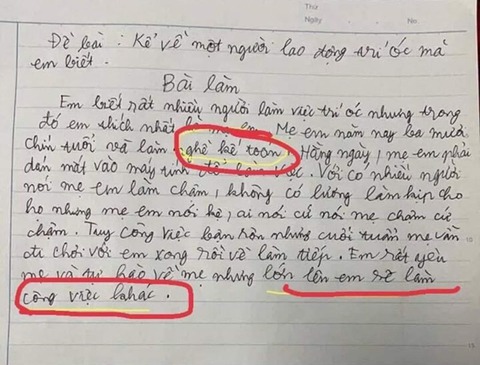 Thứ
Ngày No.
Đề bài : Kể về một người lao động trí óc mà
em biết.
Bài làm
Em biết rất nhiều người làm việc trí óc nhưng trong
đó em thích nhất là mẹ em. Mẹ em năm nay ba mươi
chín tuổi và làm nghề kế toán. Hằng ngày, mẹ em phải
dán mắt vào máy tính để làm việc. Với có nhiều người
nói mẹ em làm chậm, không có lương làm kịp cho
họ nhưng mẹ em mới kệ, ai nói cứ nói mẹ chậm cứ
chậm. Tuy công việc bận rộn nhưng cuối tuần mẹ vẫn
đi chơi với em xong rồi về làm tiếp. Em rất yêu
mẹ và tự hào về mẹ nhưng lớn lên em sẽ làm
công việc khác.
10
15